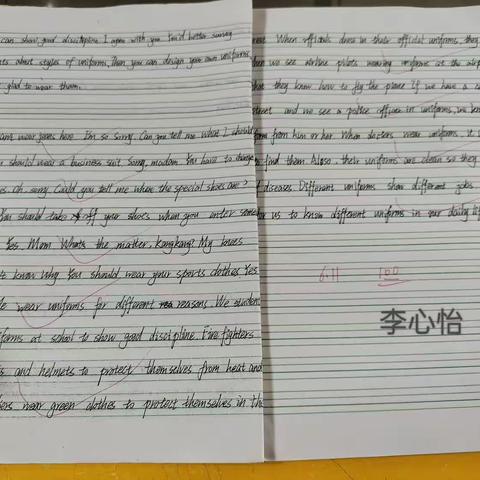 can show good discipline. I agree with you. You'd better survey
nts about styles of uniforms. Then you can design your own uniforms.
glad to wear them.
ant wear jeans here. I'm so sorry. Can you tell me what I should
u should wear a business suit. Sorry, madam. You have to change
es. Oh sorry. Could you tell me where the special shoes are?
You should take off your shoes when you enter some
Yes, Mom. What's the matter, Kangkang? My knees
know why. You should wear your sports clothes. Yes.
le wear uniforms for different reasons. We students
iforms at school to show good discipline. Fire fighters
s and helmets to protect themselves from heat and
iers wear green clothes to protect themselves in the
ment. When officials dress in their official uniforms, they
hen we see airline pilots wearing uniforms at the airp
that they know how to fly the plane. If we have a ca
street and we see a police officer in uniforms, we kn
form from him or her. When doctors wear uniforms, it i
to find them. Also, their uniforms are clean so they
f diseases. Different uniforms show different jobs
or us to know different uniforms in our daily life
6.11 100
李心怡